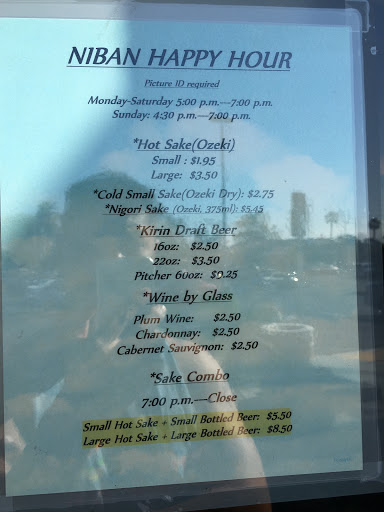 NIBAN HAPPY HOUR
Picture ID required
Monday-Saturday 5:00 p.m.—7:00 p.m.
Sunday: 4:30 p.m.—7:00 p.m.
*Hot Sake(Ozeki)
Small : $1.95
Large: $3.50
*Cold Small Sake(Ozeki Dry): $2.75
*Nigori Sake (Ozeki, 375ml): $5.45
*Kirin Draft Beer
16oz: $2.50
22oz: $3.50
Pitcher 60oz: $9.25
*Wine by Glass
Plum Wine: $2.50
Chardonnay: $2.50
Cabernet Sauvignon: $2.50
*Sake Combo
7:00 p.m.—Close
Small Hot Sake + Small Bottled Beer: $5.50
Large Hot Sake + Large Bottled Beer: $8.50